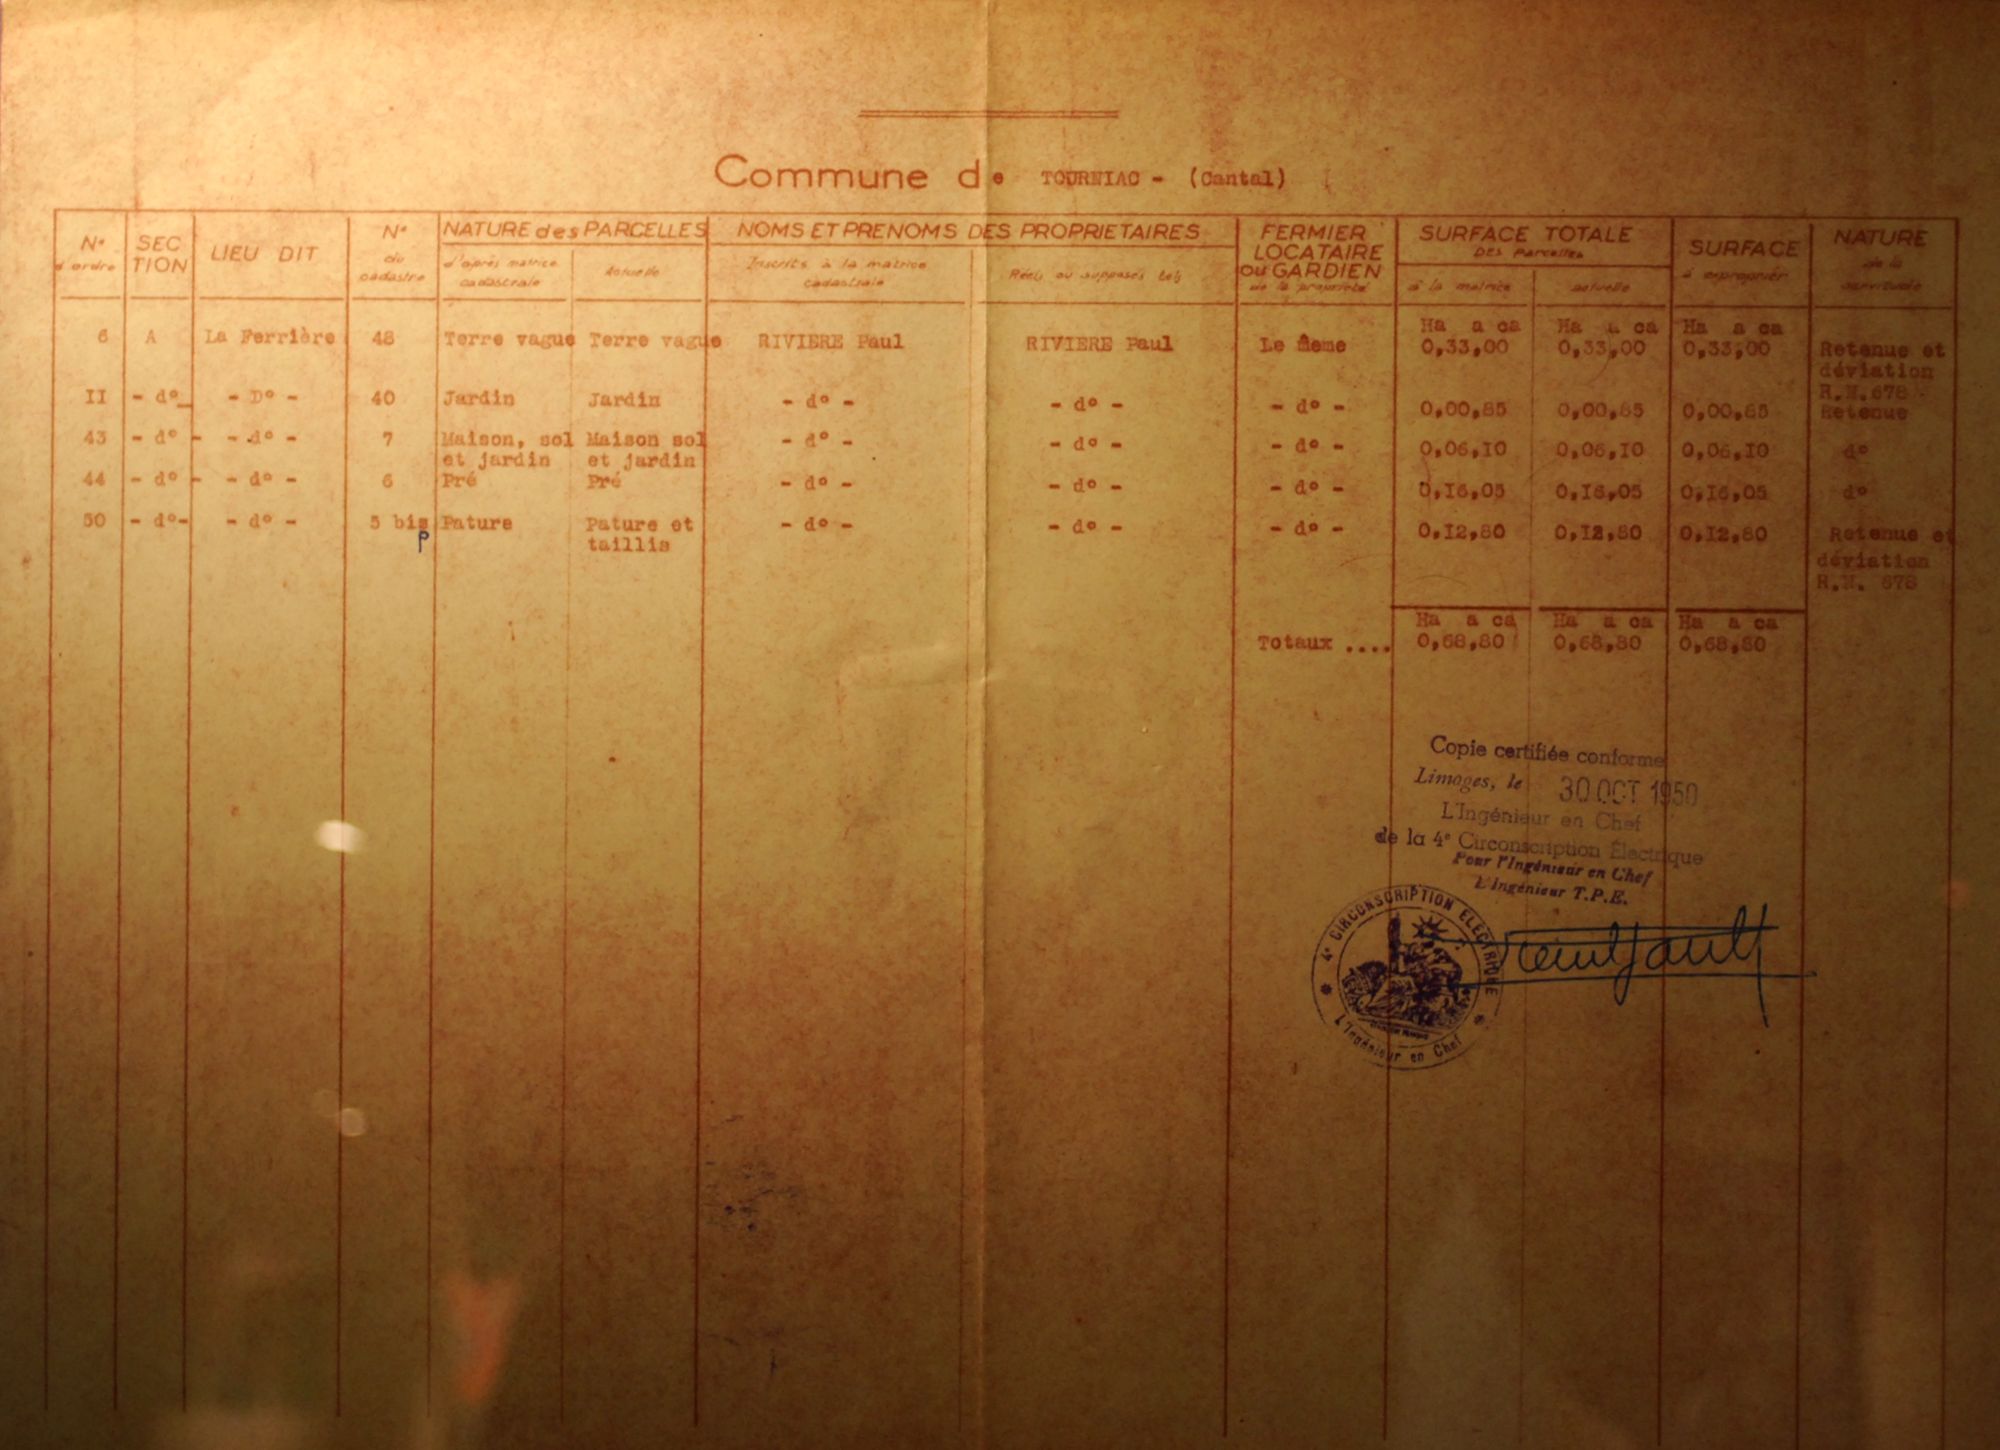 Commune de TOURNIAC - (Cantal)
N° d'ordre | SECTION | LIEU DIT | N° du cadastre | NATURE des PARCELLES | NOMS ET PRENOMS DES PROPRIETAIRES | FERMIER LOCATAIRE OU GARDIEN de la propriété | SURFACE TOTALE DES Parcelles | SURFACE à exproprier | NATURE de la servitude
d'après matrice cadastrale | Actuelle | Inscrits à la matrice cadastrale | Réels ou supposés tels | à la matrice | actuelle
Ha a ca | Ha a ca | Ha a ca
6 | A | La Ferrière | 48 | Terre vague | Terre vague | RIVIERE Paul | RIVIERE Paul | Le même | 0,33,00 | 0,33,00 | 0,33,00 | Retenue et déviation R.N.678
II | - d°_ | - D° - | 40 | Jardin | Jardin | - d° - | - d° - | - d° - | 0,00,85 | 0,00,85 | 0,00,85 | Retenue
43 | - d° - | - d° - | 7 | Maison, sol et jardin | Maison sol et jardin | - d° - | - d° - | - d° - | 0,06,I0 | 0,06,I0 | 0,06,I0 | d°
44 | - d° - | - d° - | 6 | Pré | Pré | - d° - | - d° - | - d° - | 0,I6,05 | 0,I6,05 | 0,I6,05 | d°
50 | - d°- | - d° - | 5 bis p | Pature | Pature et taillis | - d° - | - d° - | - d° - | 0,I2,80 | 0,I2,80 | 0,I2,80 | Retenue et déviation R.N. 678
Ha a ca | Ha a ca | Ha a ca
Totaux .... | 0,68,80 | 0,68,80 | 0,68,80
Copie certifiée conforme
Limoges, le 30 OCT 1950
L'Ingénieur en Chef
de la 4e Circonscription Électrique
Pour l'Ingénieur en Chef
L'Ingénieur T.P.E.
4e CIRCONSCRIPTION ELECTRIQUE
L'Ingénieur en Chef